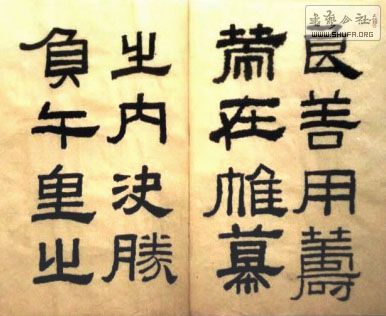 書藝公社
WWW.SHUFA.ORG
良善用籌
策在帷幕
之内決勝
負千里之